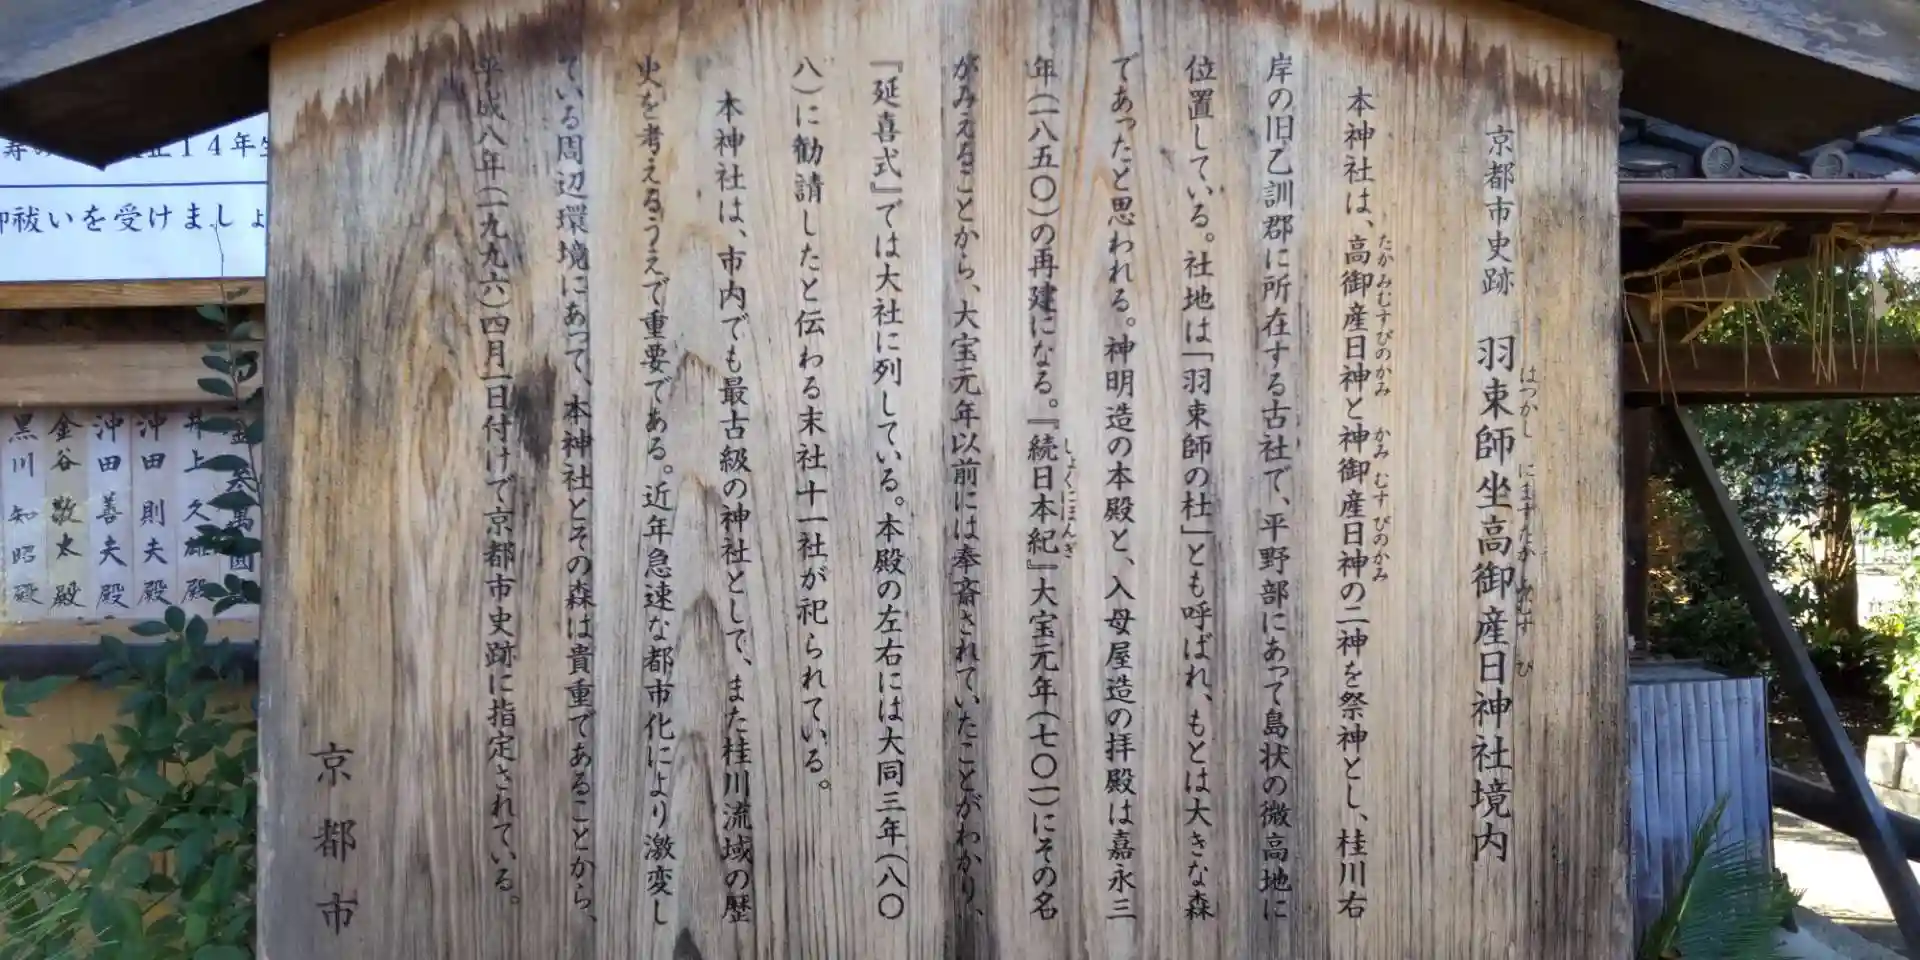 京都市史跡 羽束師坐高御産日神社境内
はつかし にますたか むす び
本神社は、高御産日神と神御産日神の二神を祭神とし、桂川右
たかみむすびのかみ かみむすびのかみ
岸の旧乙訓郡に所在する古社で、平野部にあって島状の微高地に
位置している。社地は「羽束師の杜」とも呼ばれ、もとは大きな森
であったと思われる。神明造の本殿と、入母屋造の拝殿は嘉永三
年(一八五〇)の再建になる。『続日本紀』大宝元年(七〇一)にその名
しょくにほんぎ
がみえることから、大宝元年以前には奉斎されていたことがわかり、
『延喜式』では大社に列している。本殿の左右には大同三年(八〇
八)に勧請したと伝わる末社十一社が祀られている。
本神社は、市内でも最古級の神社として、また桂川流域の歴
史を考えるうえで重要である。近年急速な都市化により激変し
ている周辺環境にあって、本神社とその森は貴重であることから、
平成八年(一九九六)四月一日付けで京都市史跡に指定されている。
京都市
14年生
祓いを受けましょ
井上久雄殿
沖田則夫殿
沖田善夫殿
金谷敬太殿
黒川知昭殿